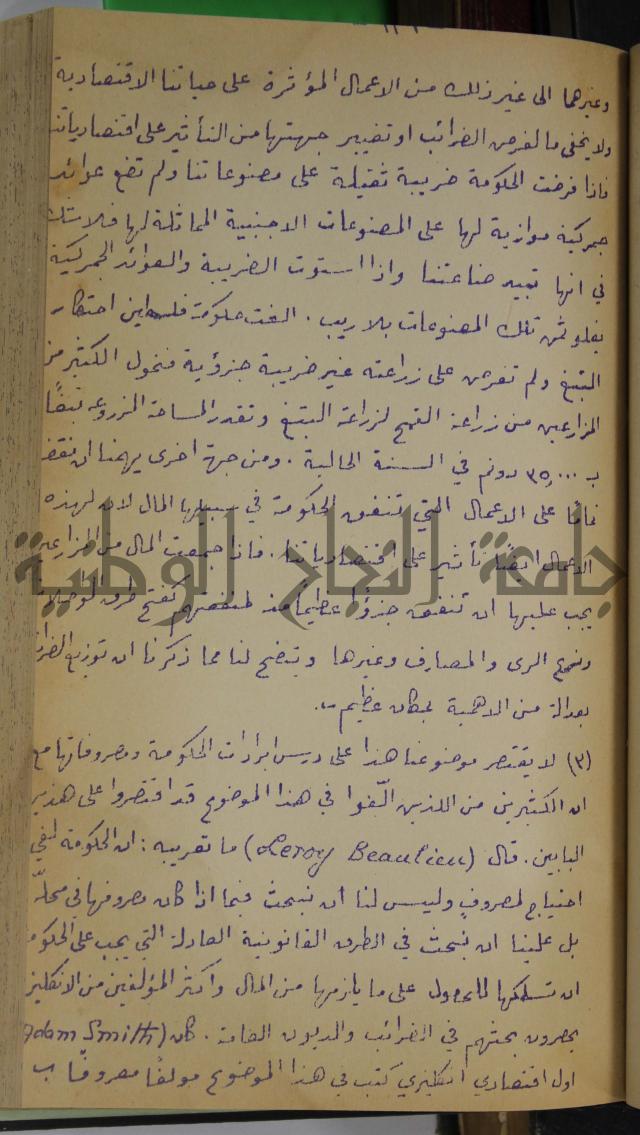 وغيرهما الى غير ذلك من الاعمال المؤثرة على حياتنا الاقتصادية
ولا يخفى ما لفرض الضرائب او تغيير جهتها من التأثير على اقتصادياتنا
فاذا فرضت الحكومة ضريبة ثقيلة على مصنوعاتنا ولم تضع عوائد
جمركية موازية لها على المصنوعات الاجنبية المماثلة لها فلا شك
في انها تبيد صناعتنا واذا استوت الضريبة والعوائد الجمركية
يغلو ثمن تلك المصنوعات بلا ريب. الغت حكومة فلسطين احتكار
التبغ ولم تفرض على زراعته غير ضريبة جزؤية فتحول الكثير من
المزارعين من زراعة القمح لزراعة التبغ وتقدر المساحة المزروعة تبغًا
ب ٣٥,٠٠٠ دونم في السنة الحالية. ومن جهة اخرى يهمنا ان نقف
تمامًا على الاعمال التي تنفق الحكومة في سبيلها المال لان لهذه
الاعمال ايضًا تأثير على اقتصادياتنا. فاذا جمعت المال من المزارعين
يجب عليها ان تنفق جزؤًا عظيمًا منه لمنفعتهم كفتح طرق
الرى والمصارف وغيرها ويتضح لنا مما ذكرنا ان توزيع الضرائب
بعدالة من الاهمية بمكان عظيم.
(٣) لا يقتصر موضوعنا هذا على درس ايرادات الحكومة ومصروفاتها مع
ان الكثيرين من اللذين الّفوا في هذا الموضوع قد اقتصروا على هذين
البابين. قال (Leroy Beaulieu) ما تعريبه: ان الحكومة لفي
احتياج لمصروف وليس لنا ان نبحث فيما اذا كان مصروفها في محلّه
بل علينا ان نبحث في الطرق القانونية العادلة التي يجب على الحكومة
ان تسلكها للحصول على ما يلزمها من المال واكثر المؤلفين من الانكليز
يحصرون بحثهم في الضرائب والديون العامة. كان (Adam Smith)
اول اقتصادي انكليزي كتب في هذا الموضوع مولفًا معروفًا ب
جامعة النجاح الوطنية